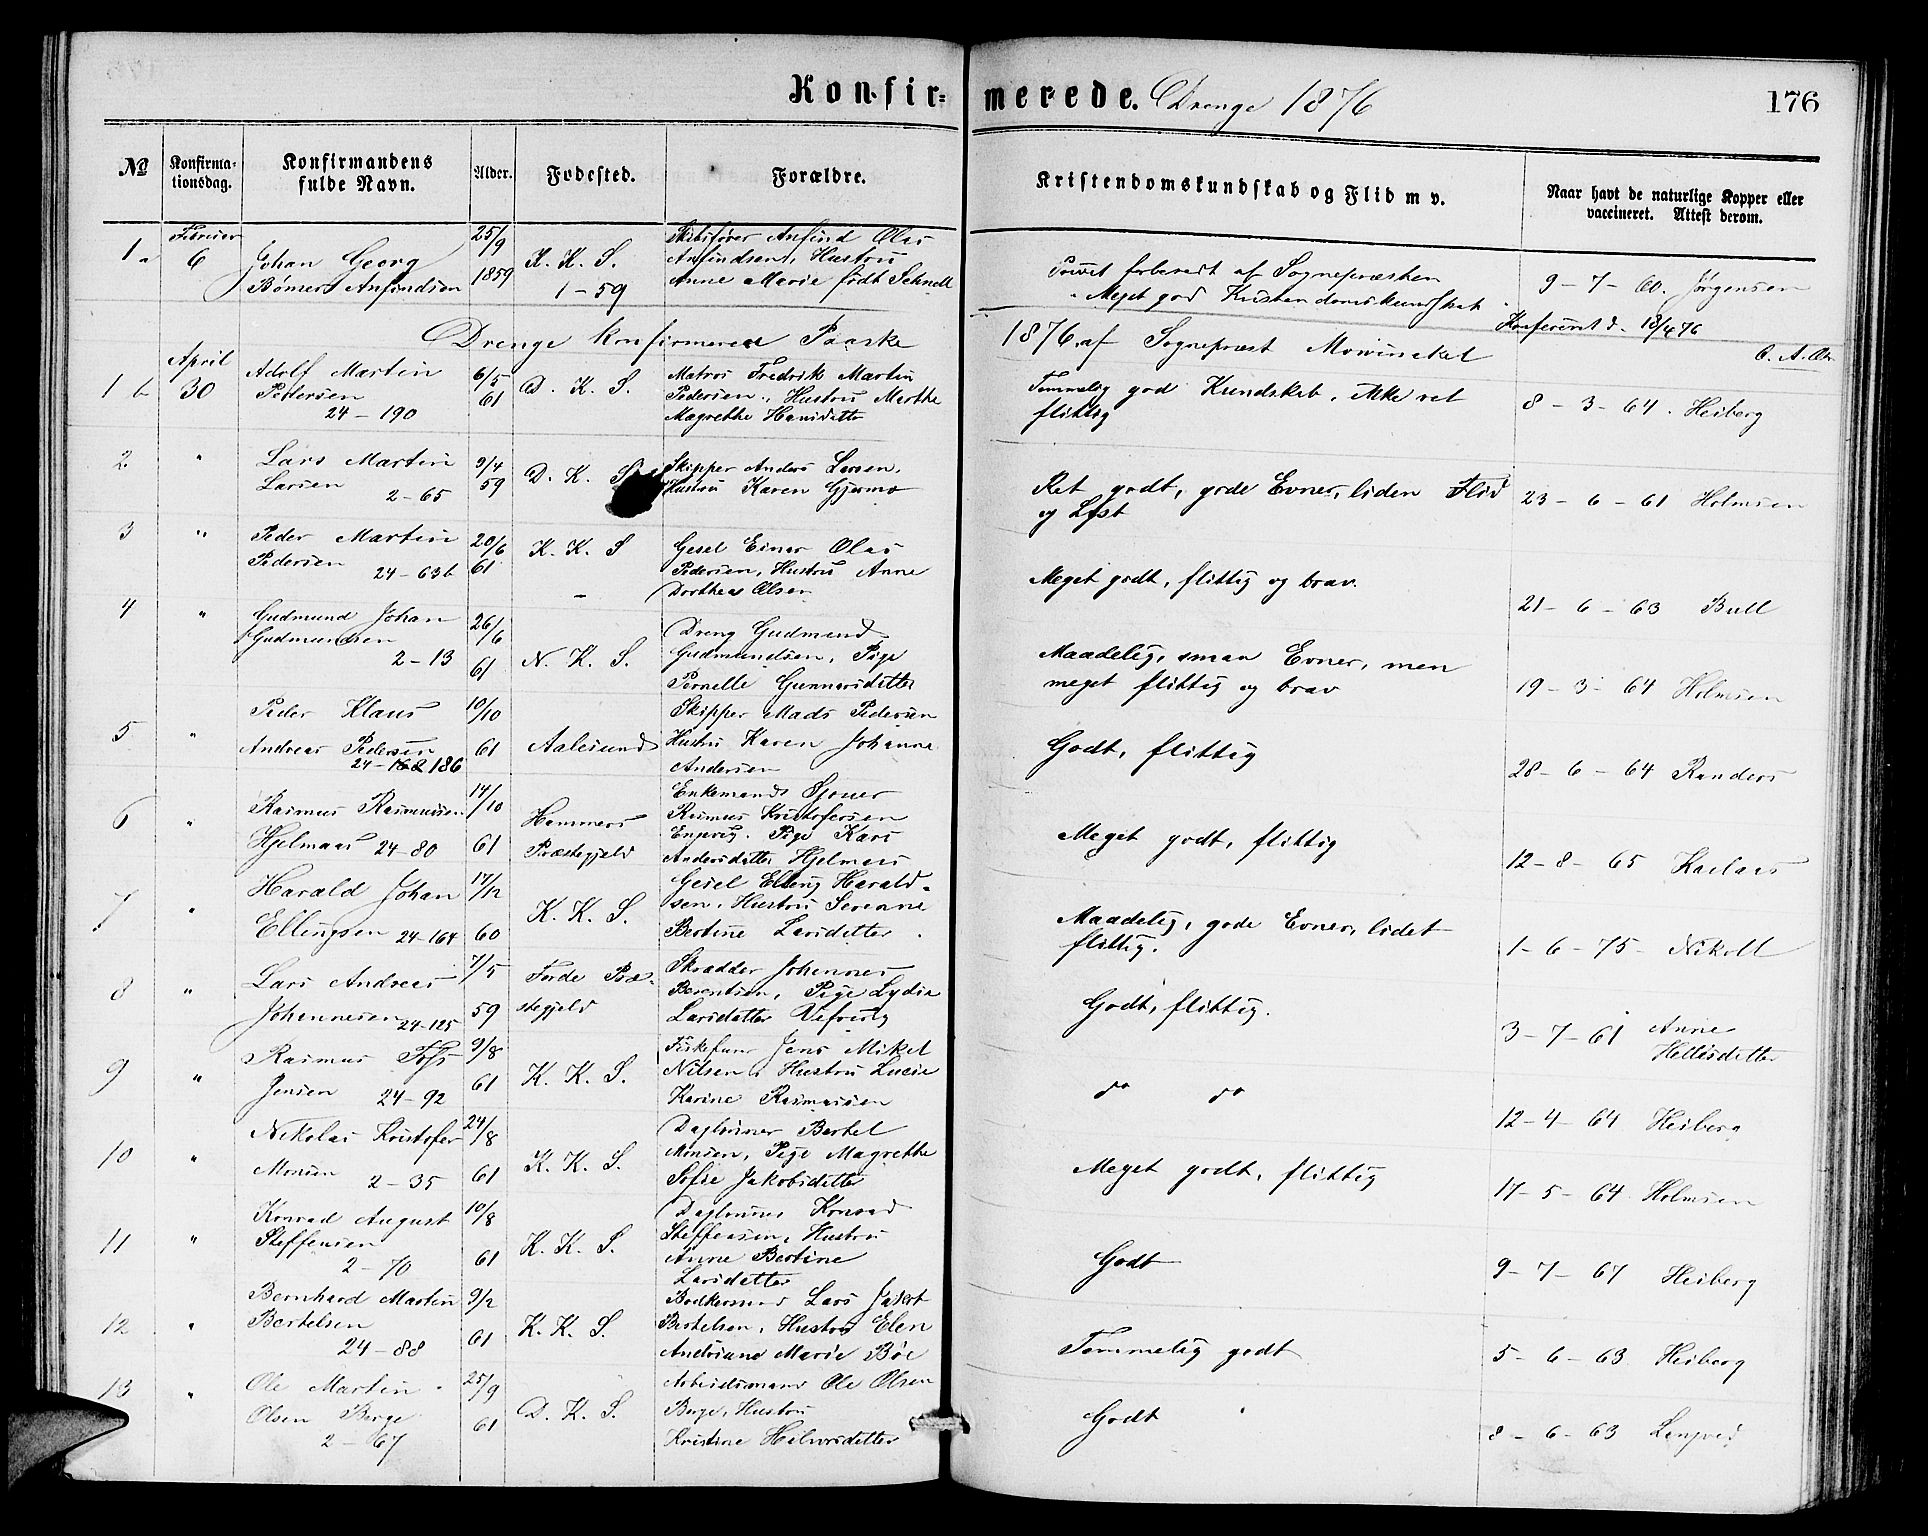 Konfirmerede. Drenge 1876
176
№
Konfirmationsdag.
Konfirmandens fulde Navn.
Alder.
Fødested.
Forældre.
Kristendomskundskab og Flid m v.
Naar havt de naturlige Kopper eller vaccineret. Attest derom.
1a
6
Johan Georg
25/9
1859
K. K. S.
1-59
Anfind Olai
Anfindsen, Hustru
Anne Marie født Schnell
forberedt af Sognepræsten
Meget god Kristendomskundskab
9-7-60. Jørgensen
Konfereret d. 18/4 76
Drenge konfirmerede Paaske
1876 af Sognepræst Mowinckel
April
1b
30
Adolf Martin
Pedersen
24-190
6/5
61
D. K. S.
Matros Fredrik Martin
Pedersen, Hustru Marthe
Magrethe Hansdatter
Temmelig god Kundskab, ikke ret
flittig
8-3-64. Heiberg
2
"
Lars Martin
Larsen
2-65
9/4
59
D. K. S
Skipper Anders Larsen,
Hustru Karen Gjermo
Ret godt, gode Evner, liden Flid
og Lyst
23-6-61 Holmsen
3
"
Peder Martin
Pedersen
24-63b
20/6
61
K. K. S
Gesel Einar Olai
Pedersen, Hustru Anne
Dorthea Olsen
Meget godt, flittig og brav.
21-6-63 Bull
4
"
Gudmund Johan
Gudmundsen
2-13
26/6
61
N. K. S.
Dreng Gudmund
Gudmundsen, Pige
Pernelle Gunnarsdatter
Maadelig, smaa Evner, men
meget flittig og brav
19-3-64 Holmsen
5
"
Peder Klaus
Andreas Pedersen
24-168 186
10/10
61
Aalesund
Skipper Mads Pedersen
Hustru Karen Johanne
Andersen
Godt, flittig
28-6-64 Randers
6
"
Rasmus Rasmussen
Hjelmaas 24-80
14/10
61
Hammers
Præstegjeld
Enkemand
Rasmus Kristofersen
Pige Kari
Andersdatter Hjelmaas
Meget godt, flittig
12-8-65
7
"
Harald Johan
Ellingsen 24-164
17/12
60
K. K. S.
Gesel Elling Harald-
sen, Hustru Sereane
Bertine Larsdatter
Maadelig, gode Evner, lidet
flittig.
1-6-75 Nikoll
8
"
Lars Andreas
Johannesen 24-125
7/5
59
Førde Præ-
stegjeld
Skrædder Johannes
Berentsen, Pige Lydia
Larsdatter
Godt, flittig.
3-7-61 Anne
9
"
Rasmus
Jensen 24-92
9/8
61
K. K. S.
Jens Mikel
Nilsen, Hustru Lucie
Karine Rasmussen
do do
12-4-64 Heiberg
10
"
Nikolai Kristofer
Monsen 2-35
24/8
61
K. K. S.
Daglønner Bertel
Monsen, Pige Magrethe
Sofie Jakobsdatter
Meget godt, flittig
17-5-64 Holmsen
11
"
Konrad August
Steffensen
2-70
10/8
61
K. K. S.
Daglønner Konrad
Steffensen, Hustru
Anne Bertine
Larsdatter
Godt
9-7-67 Heiberg
12
"
Bernhard Martin
Bertelsen
24-88
9/2
61
K. K. S.
Lars
Bertelsen, Hustru Elen
Andriane Marie Böe
Temmelig godt
5-6-63 Heiberg
13
"
Ole Martin
Olsen Berge
2-67
25/9
61
D. K. S.
Arbeidsmand Ole Olsen
Berge, Hustru
Kristine
Godt
8-6-63